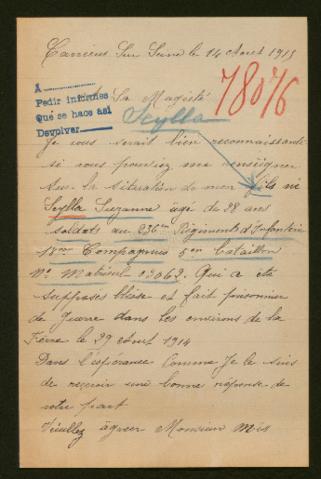 Carrières Sur Seine le 14 Aout 1915
A
Pedir informes
Que se hace así
Devolver
78076
Sa Magesté
Scylla
Je vous serait bien reconnaissante
si vous pourriez me renseigner
sur la situation de mon fils
Scylla Suzanne agé de 28 ans
soldats au 236em Régiments d'Infanterie
18em Compagnies 5em bataillon
No Matricul 02062. Qui a été
supposés blésse et fait prisonnier
de Guerre dans les environs de la
Fère le 29 aout 1914
Dans l'espérance comme Je le suis
de reçevoir une bonne réponse de
votre part
Veuillez agréer Monsieur mes